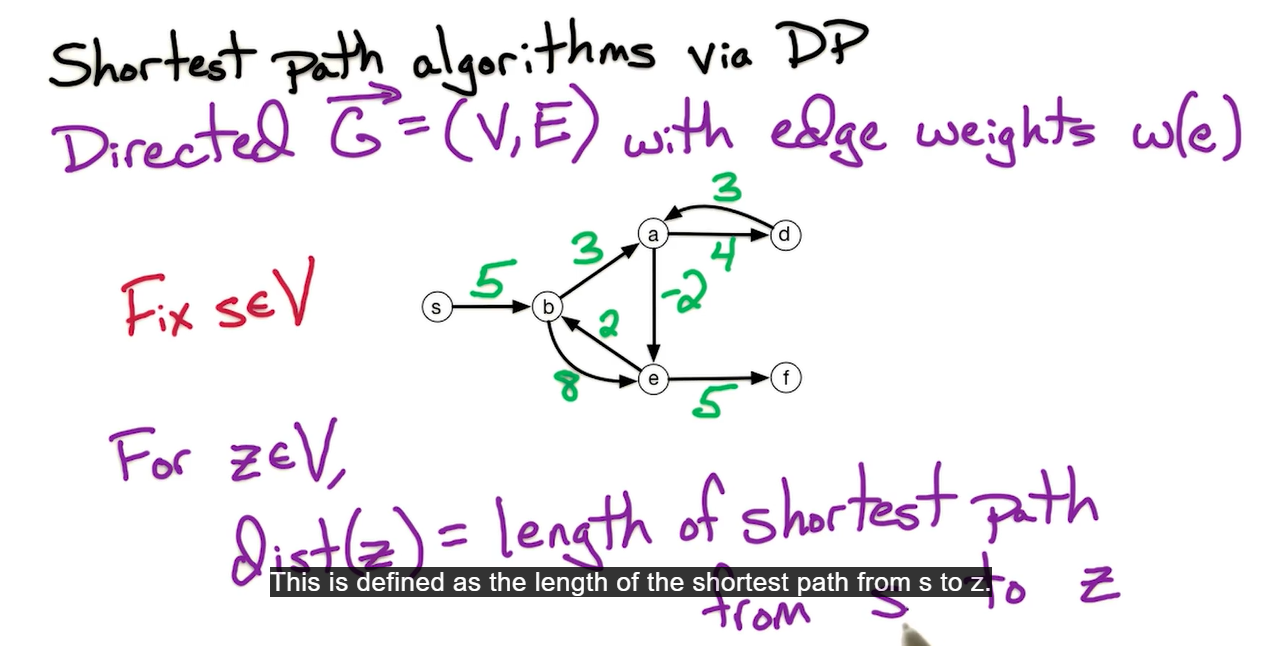 Shortest path algorithms via DP
Directed G⃗ = (V, E) with edge weights w(e)
3
a
d
4
3
Fix s∈V
5
-2
s
b
2
8
e
f
5
For z∈V,
dist(z) = length of shortest path
from s to z
This is defined as the length of the shortest path from s to z.